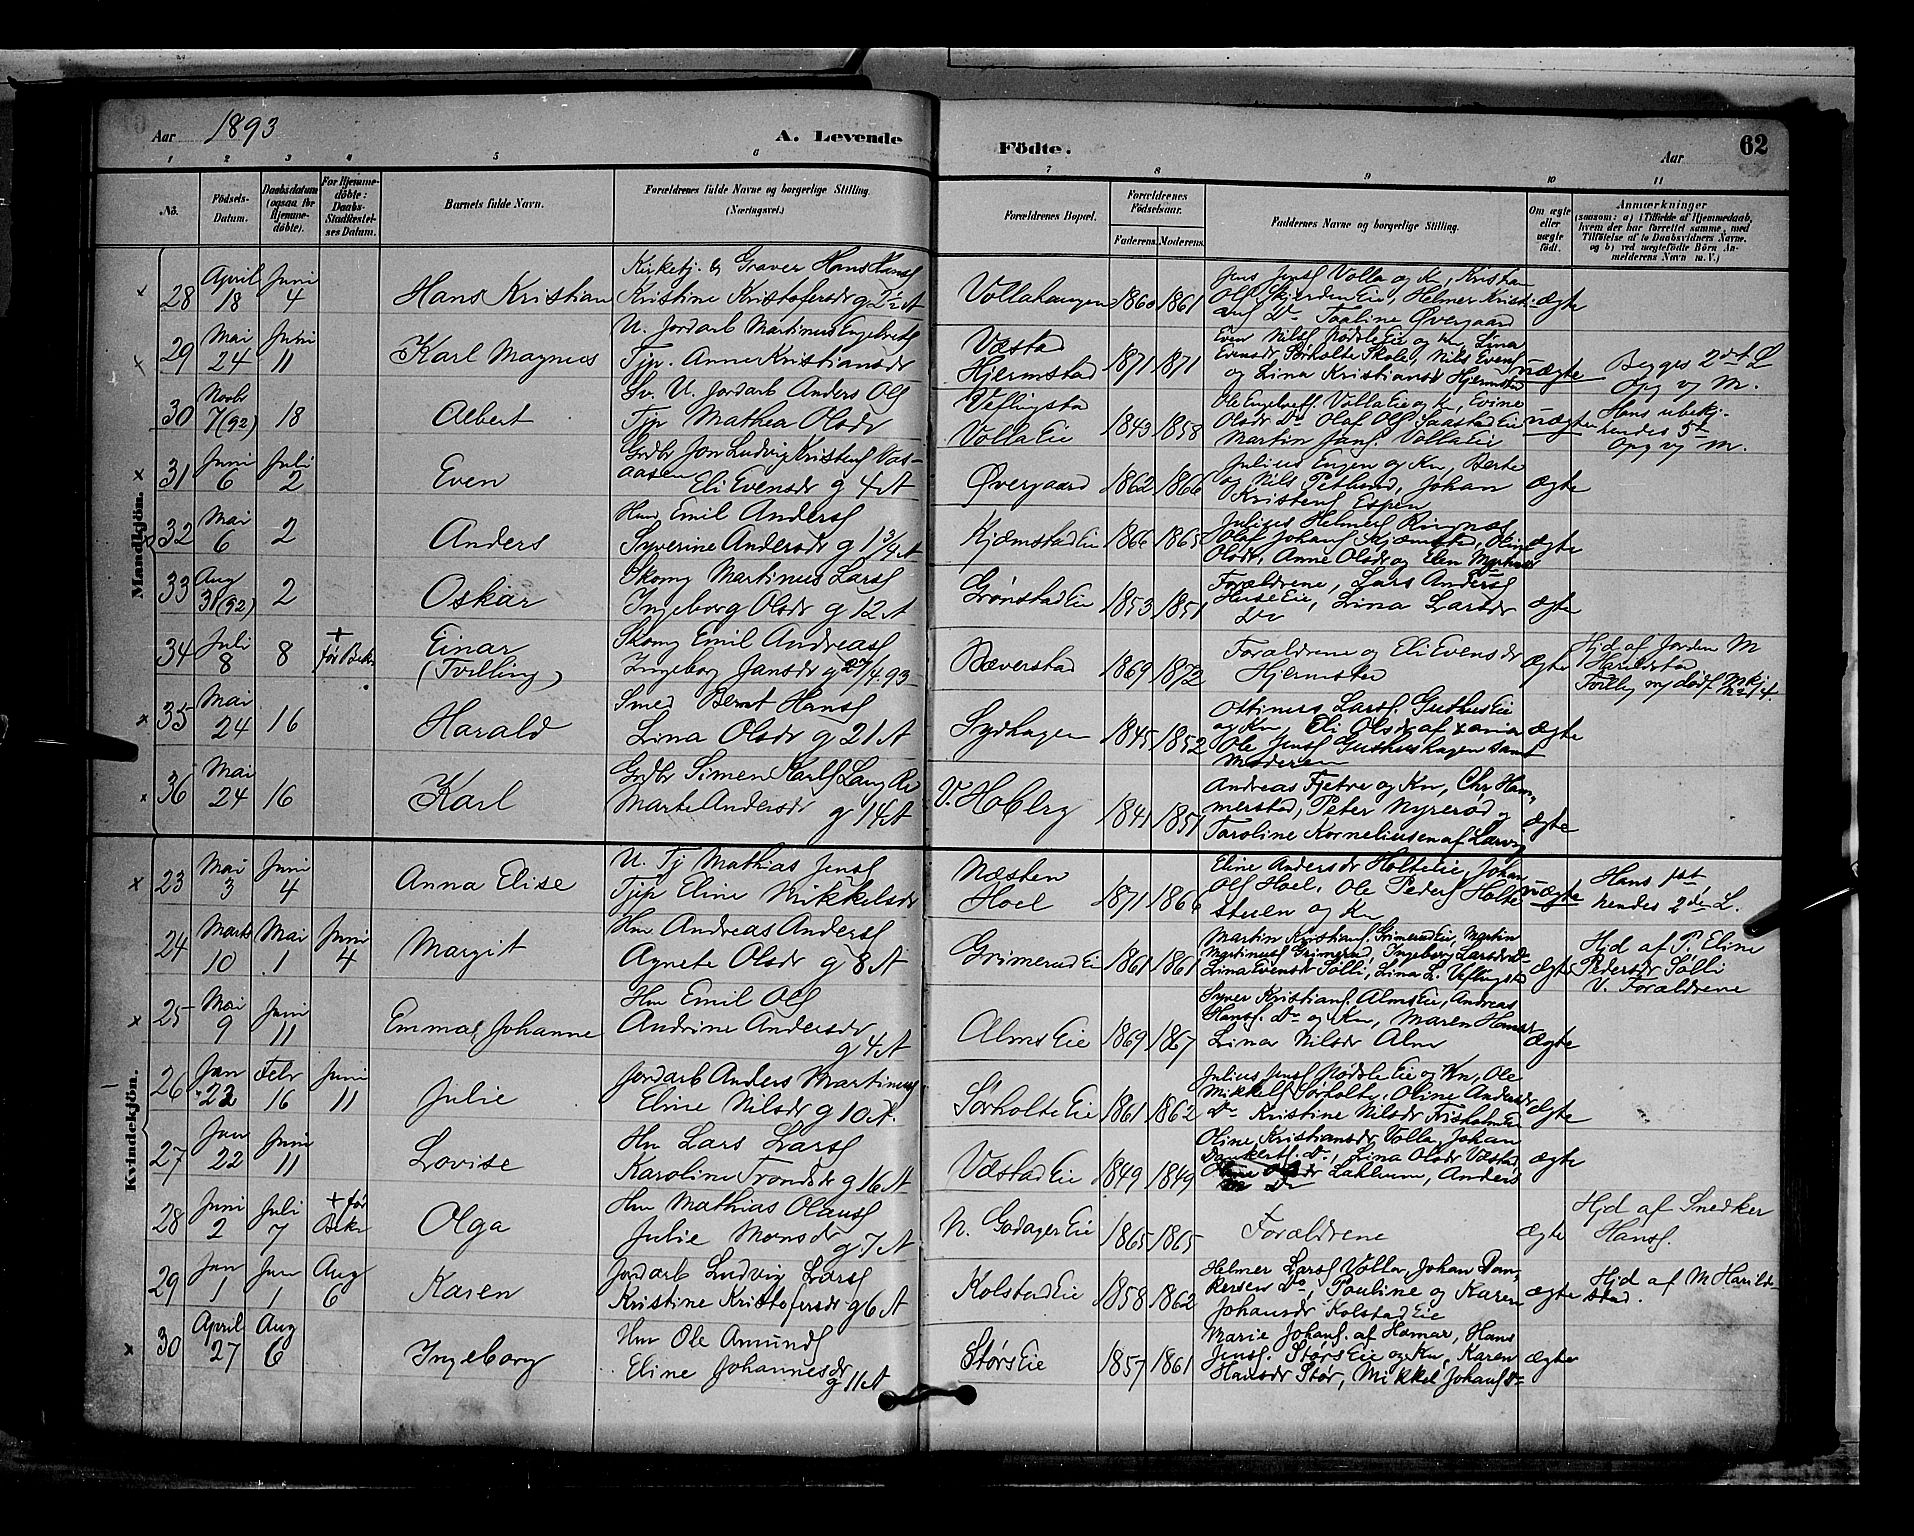 Aar 1893 A. Levende Födte. Aar 62
1 2 3 4 5 6 7 8 9 10 11
Nö.
Födsels-Datum.
Daabsdatum (ogsaa for Hjemme-döbte).
For Hjemme-döbte: Daabs-Stadfæstel-ses Datum.
Barnets fulde Navn.
Forældrenes fulde Navne og borgerlige Stilling. (Næringsvei.)
Forældrenes Bopæl.
Forældrenes Födselsaar.
Faderens. Moderens.
Faddernes Navne og borgerlige Stilling.
Om ægte eller uægte födt.
Anmærkninger
(saasom: a) i Tilfælde af Hjemmedaab, hvem der har forrettet samme, med Tilföielse af to Daabsvidners Navne. og b) ved uægtefödte Börn Anmelderens Navn m. V.)
Mandkjön.
28 April 18 Juni 4 Hans Kristian
Kirketj. & Graver Hans Hansf
Kristine Kristofersdr g 2 1/2 A
Vollahaugen 1860 1861
Jens Jensf Volla og Kn, Kristian
Olf Skjerden Eie, Helmer Kristi-
ansf Do Paaline Övergaard
ægte
29 Mai 24 Juni 11 Karl Magnus
U. Jordarb Martinus Engebretsf
Tjp. Anne Kristiansdr
Væstad
Hjermstad 1871 1871
Even Nilsf Nodsle Eie og Kn, Lina
Evensdr Sörholte Skole, Nils Evensf
og Lina Kristiansdr Hjermstad
uægte
Begges 2det L
Opg vj M.
30 Novbr 7 (92) 18 Albert
Gv. U. Jordarb Anders Olf
Tjp Mathea Olsdr
Veflingstad
Volla Eie 1843 1858
Ole Engebretf. Volla Eie og Kn, Evine
Olsdr Do Olaf Olf Saastad Eie
Martin Jansf Volla Eie
uægte
Hans ubekj.
hendes 5t
Opg vj M.
31 Juni 6 Juli 2 Even
Grdbr Jon Ludvig Kristensf Vas-
aasen
Eli Evensdr g 4 A
Övergaard 1862 1866
Julius Engen og Kn, Berte
og Nils Petlund, Johan
Kristensf Espen
ægte
32 Mai 6 2 Anders
Hm Emil Andersf
Syverine Andersdr g 1 3/4 A
Kjæmstad Eie 1866 1865
Julius Helmers Ringnæs
Olof Johansf Kjæmstad, Oline
Olsdr, Anne Olsdr og Elen
ægte
33 Aug 31 (92) 2 Oskar
Skomg Martinus Larsf
Ingeborg Olsdr g 12 A
Grönstad Eie 1853 1851
Forældrene, Lars Andersf
Huse Eie, Lina Larsdr
Do
ægte
34 Juli 8 8 + før Bek. Einar
(Tvilling)
Skomg Emil Andreasf
Ingeborg Jansdr g 27/4 93
Bæverstad 1869 1872
Forældrene og Eli Evensdr
Hjermstad
ægte
Hjd af Jordem M
Harildstad
35 Mai 24 16 Harald
Smed Bernt Hansf
Lina Olsdr g 21 A
Sydhagen 1845 1852
Ottinius Larsf. Guthus Eie
og Kn Eli Olsdr af
Ole Jensf Guthushagen samt
Moderen
ægte
36 Mai 24 16 Karl
Grdbr Simen Karlf Lang Re
Marte Andersdr g 14 A
V. Hoberg 1841 1851
Andreas Fjetre og Kn, Chr, Ham-
merstad, Peter Nyreröd og
Taroline Korneliusen af Larvig
ægte
Kvindekjön.
23 Mai 3 Juni 4 Anna Elise
U. Tj Mathias Jensf
Tjp Eline Mikkelsdr
Næsten
Hoel 1871 1866
Eline Andersdr Holtelie, Johan
Olf Hoel, Ole Pedersf Holte
stuen og Kn
uægte
Hans 1st
hendes 2det L.
24 Marts 10 Mai 1 Juni 4 Margit
Hm Andreas Andersf
Agnete Olsdr g 8 A
Grimerud Eie 1861 1861
Martin Kristiansf. Grimerud Eie, Martin
Martinusf Grimerud, Ingeborg Larsdr Do
Lina Evensdr Solli, Lina L. Veflingstad
ægte
Hjd af P. Eline
Pedersdr Solli
V. Forældrene
25 Mai 9 Juni 11 Emma Johanne
Hm Emil Olf
Andrine Andersdr
g 4 A
Alms Eie 1869 1867
Syver Kristiansf. Alms Eie, Andreas
Hansf. Do og Kn, Maren Hansdr
Lina Nilsdr Alm
ægte
26 Jan 22 Febr 16 Juni 11 Julie
Jordarb Anders Martinusf
Eline Nilsdr g 10 A.
Sörholte Eie 1861 1862
Julius Jensf Nodsle Eie og Kn, Ole
Mikkelf Sörholte, Oline Andersdr
Do Kristine Nilsdr Frisholm Eie
ægte
27 Jan 22 Juni 11 Lovise
Hm Lars Larsf
Karoline Trondsdr g 16 A
Væstad Eie 1849 1849
Oline Kristiansdr Volla, Johan
Dankertf. Do, Lina Olsdr Væstad
Lahlum, Anders
Do
ægte
28 Juni 2 Juli 7 + før Bek Olga
Hm Mathias Olausf
Julie Monsdr
g 7 A
N. Godager Eie 1865 1865
Forældrene
ægte
Hjd af Snedker
Hansf.
29 Jan 1 Jan 1 Aug 6 Karen
Jordarb Ludvig Larsf
Kristine Kristofersdr g 6 A
Kolstad Eie 1858 1862
Helmer Larsf Volla, Johan Dan-
kersen Do, Pauline og Karen
Johansdr Kolstad Eie
ægte
Hjd af M Harild-
stad.
30 April 27 Aug 6 Ingeborg
Hm Ole Amundf
Eline Johannesdr
g 11 A
Störs Eie 1857 1861
Marie Johansf. af Hamar, Hans
Jensf. Störs Eie og Kn, Karen
Hansdr Stör, Mikkel Johansf Do
ægte